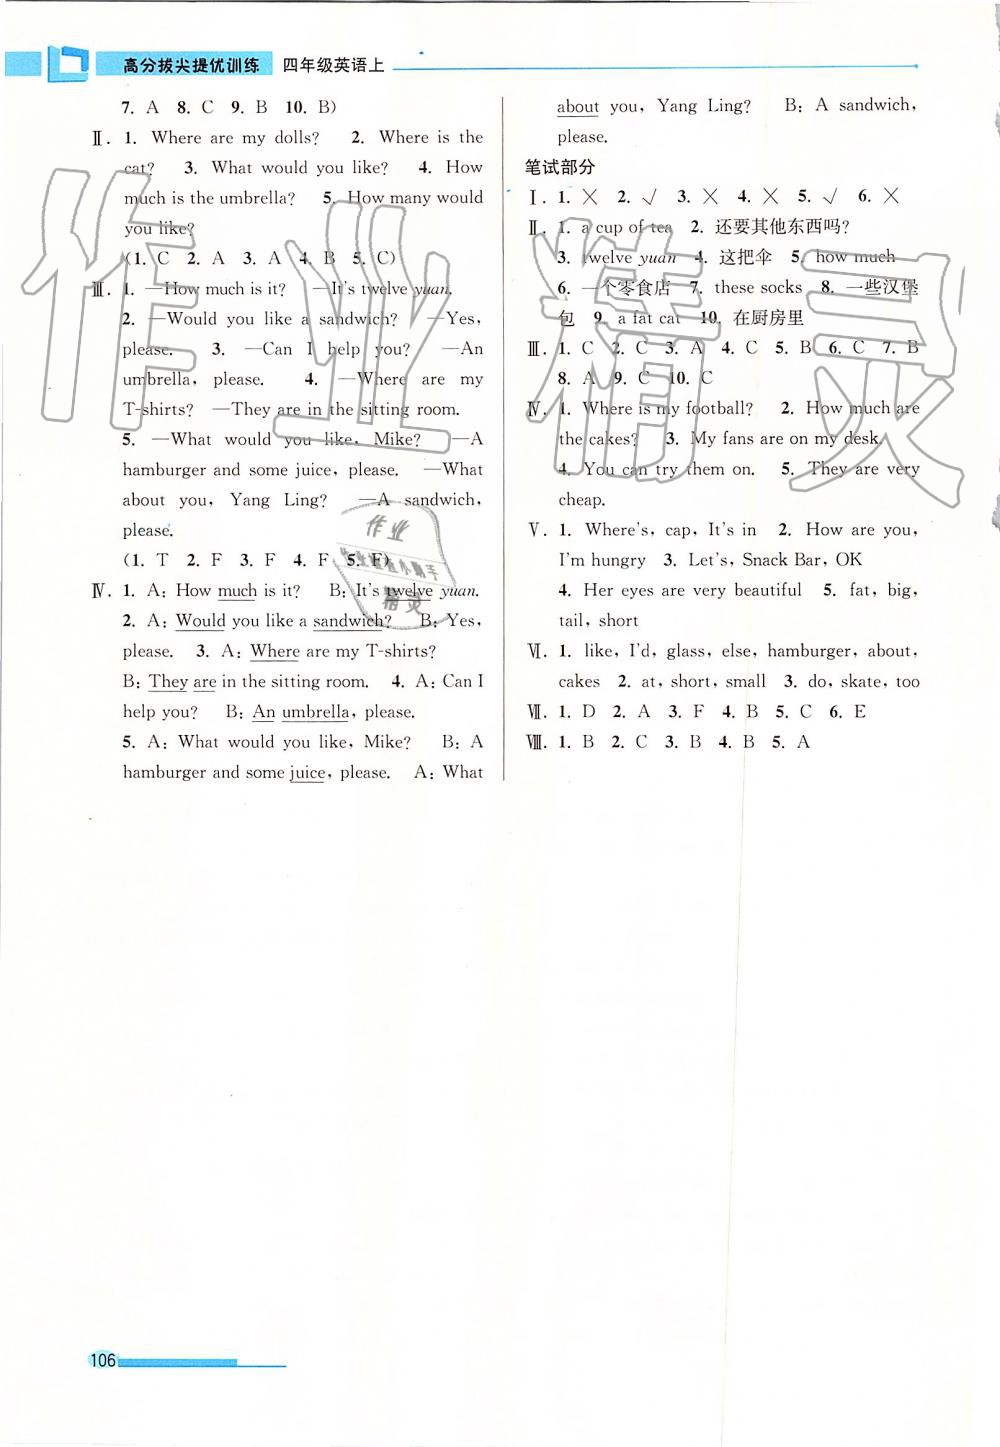 高分拔尖提优训练 四年级英语上
7. A 8. C 9. B 10. B)
Ⅱ. 1. Where are my dolls? 2. Where is the
cat? 3. What would you like? 4. How
much is the umbrella? 5. How many would
you like?
(1. C 2. A 3. A 4. B 5. C)
Ⅲ. 1. —How much is it? —It's twelve yuan.
2. —Would you like a sandwich? —Yes,
please. 3. —Can I help you? —An
umbrella, please. 4. —Where are my
T-shirts? —They are in the sitting room.
5. —What would you like, Mike? —A
hamburger and some juice, please. —What
about you, Yang Ling? —A sandwich,
please.
(1. T 2. F 3. F 4. F 5. F)
Ⅳ. 1. A: How much is it? B: It's twelve yuan.
2. A: Would you like a sandwich? B: Yes,
please. 3. A: Where are my T-shirts?
B: They are in the sitting room. 4. A: Can I
help you? B: An umbrella, please.
5. A: What would you like, Mike? B: A
hamburger and some juice, please. A: What
about you, Yang Ling? B: A sandwich,
please.
笔试部分
Ⅰ. 1. × 2. √ 3. × 4. × 5. √ 6. ×
Ⅱ. 1. a cup of tea 2. 还要其他东西吗?
3. twelve yuan 4. 这把伞 5. how much
6. 一个零食店 7. these socks 8. 一些汉堡
包 9. a fat cat 10. 在厨房里
Ⅲ. 1. C 2. C 3. A 4. C 5. B 6. C 7. B
8. A 9. C 10. C
Ⅳ. 1. Where is my football? 2. How much are
the cakes? 3. My fans are on my desk.
4. You can try them on. 5. They are very
cheap.
Ⅴ. 1. Where's, cap, It's in 2. How are you,
I'm hungry 3. Let's, Snack Bar, OK
4. Her eyes are very beautiful 5. fat, big,
tail, short
Ⅵ. 1. like, I'd, glass, else, hamburger, about,
cakes 2. at, short, small 3. do, skate, too
Ⅶ. 1. D 2. A 3. F 4. B 5. C 6. E
Ⅷ. 1. B 2. C 3. B 4. B 5. A
作业精灵
作业
精灵
106